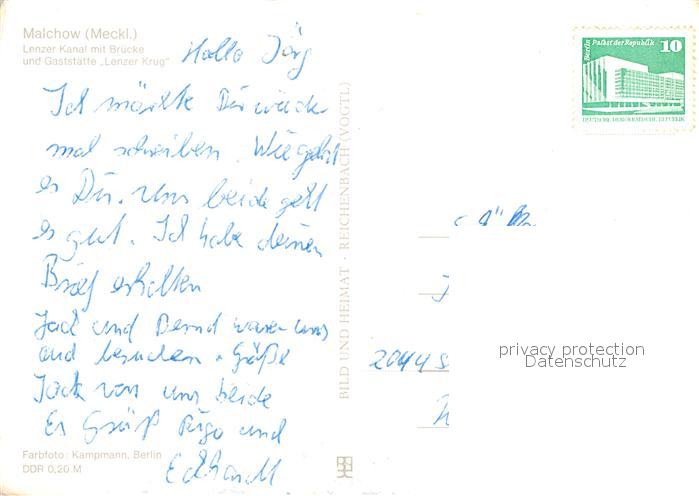 Malchow (Meckl.)
Lenzer Kanal mit Brücke
und Gaststätte „Lenzer Krug"
Hallo Jörg
Ich möchte Dir wieder
mal schreiben. Wie geht
es Dir. Uns beide geht
es gut. Ich habe deinen
Brief erhalten
und Bernd waren uns
auch besuchen. Grüße
von uns beide
Es Grüß und
Eckhardt
Farbfoto: Kampmann, Berlin
DDR 0,20 M
BILD UND HEIMAT · REICHENBACH (VOGTL)
Berlin
Palast der Republik
10
DEUTSCHE DEMOKRATISCHE REPUBLIK
2044
privacy protection
Datenschutz